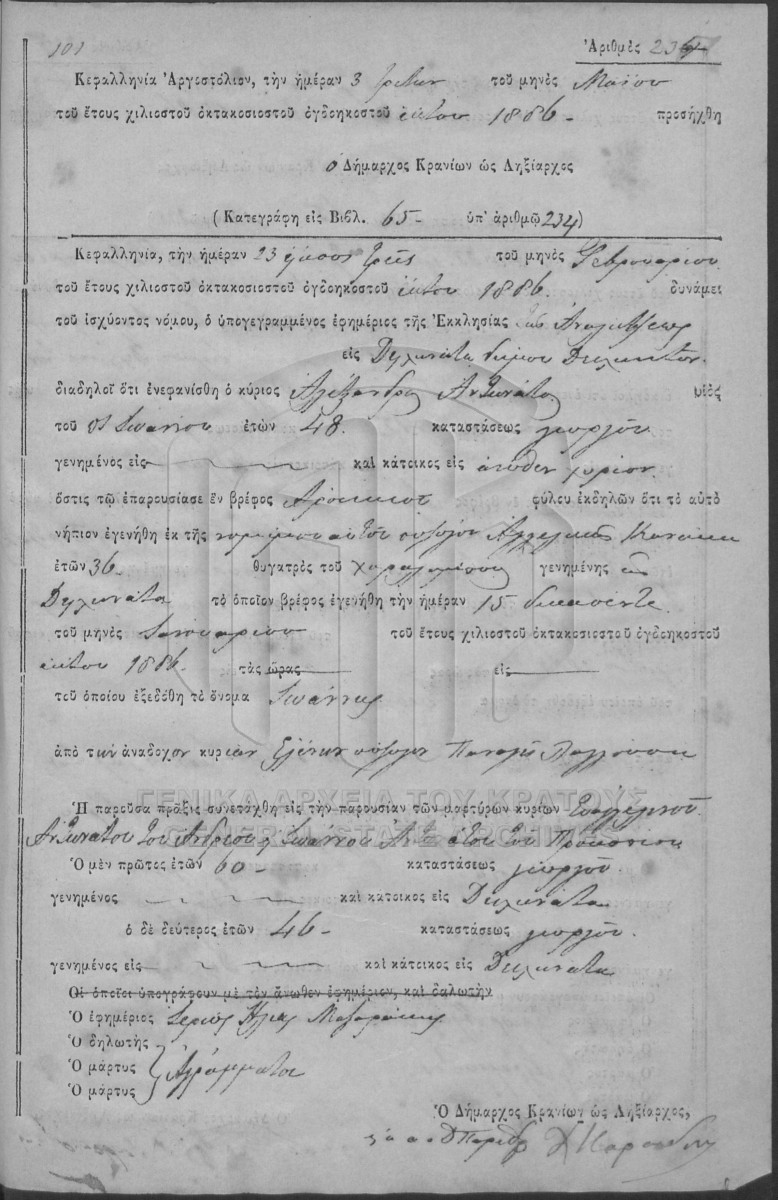 101
Ἀριθμὸς 234
Κεφαλληνία Ἀργοστόλιον, τὴν ἡμέραν 3 τρίτην τοῦ μηνὸς Μαΐου
τοῦ ἔτους χιλιοστοῦ ὀκτακοσιοστοῦ ὀγδοηκοστοῦ ἕκτου 1886 - προσήχθη
Ὁ Δήμαρχος Κρανίων ὡς Ληξίαρχος
(Κατεγράφη εἰς Βιβλ. 65 - ὑπ' ἀριθμῷ 234)
Κεφαλληνία, τὴν ἡμέραν 23 εἴκοσι τρεῖς τοῦ μηνὸς Φεβρουαρίου
τοῦ ἔτους χιλιοστοῦ ὀκτακοσιοστοῦ ὀγδοηκοστοῦ ἕκτου 1886. δυνάμει
τοῦ ἰσχύοντος νόμου, ὁ ὑπογεγραμμένος ἐφημέριος τῆς Ἐκκλησίας τῆς Ἀναλήψεως
εἰς Διλινάτα δήμου
διαδηλοῖ ὅτι ἐνεφανίσθη ὁ κύριος Ἀλέξανδρος Ἀντωνάτος υἱὸς
τοῦ Ἰωάννου ἐτῶν 48. καταστάσεως γεωργοῦ
γενημένος εἰς καὶ κάτοικος εἰς ἄνωθεν χωρίον
ὅστις τῷ ἐπαρουσίασε ἓν βρέφος ἀρσενικοῦ φύλου ἐκδηλῶν ὅτι τὸ αὐτὸ
νήπιον ἐγενήθη ἐκ τῆς νομίμου αὐτοῦ συζύγου Ἀγγελικῆς
ἐτῶν 36 - θυγατρὸς τοῦ Χαραλάμπους γενημένης εἰς
Διλινάτα τὸ ὁποῖον βρέφος ἐγενήθη τὴν ἡμέραν 15 δεκαπέντε
τοῦ μηνὸς Ἰανουαρίου τοῦ ἔτους χιλιοστοῦ ὀκτακοσιοστοῦ ὀγδοηκοστοῦ
ἕκτου 1886. τὰς ὥρας εἰς
τοῦ ὁποίου ἐξεδόθη τὸ ὄνομα Ἰωάννης
ἀπὸ τὴν ἀνάδοχον κυρίαν Ἑλένην σύζυγον Παναγῆ
ΓΕΝΙΚΑ ΑΡΧΕΙΑ ΤΟΥ ΚΡΑΤΟΥΣ
Ἡ παροῦσα πρᾶξις συνετάχθη εἰς τὴν παρουσίαν τῶν μαρτύρων κυρίων Εὐαγγελινοῦ
GENERAL STATE ARCHIVES
Ἀντωνάτου τοῦ Ἀνδρέου, Ἰωάννου τοῦ
Ὁ μὲν πρῶτος ἐτῶν 60 - καταστάσεως γεωργοῦ
γενημένος καὶ κάτοικος εἰς Διλινάτα
ὁ δὲ δεύτερος ἐτῶν 46 - καταστάσεως γεωργοῦ.
γενημένος εἰς καὶ κάτοικος εἰς Διλινάτα
Οἱ ὁποῖοι ὑπογράφουν μὲ τὸν ἄνωθεν ἐφημέριον, καὶ δαλωτὴν
Ὁ ἐφημέριος Ἱερεὺς Ἠλίας Μαζαράκης
Ὁ δηλωτὴς
Ὁ μάρτυς Ἀγράμματοι
Ὁ μάρτυς
Ὁ Δήμαρχος Κρανίων ὡς Ληξίαρχος,